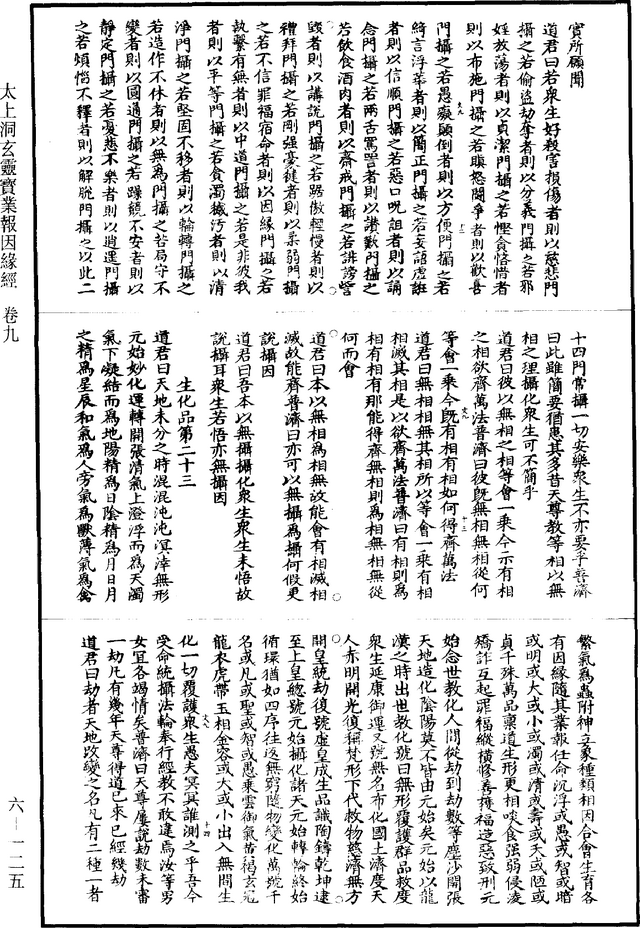 實所願聞
道君曰若衆生好殺害損傷者則以慈悲門
攝之若偷盜劫奪者則以分義門攝之若邪
婬放蕩者則以貞潔門攝之若慳貪悋惜者
則以布施門攝之若瞋怒鬪爭者則以歡喜
門攝之若愚癡顛倒者則以方便門攝之若
綺言浮華者則以簡正門攝之若妄語虛誑
者則以信順門攝之若惡口呪詛者則以誦
念門攝之若兩舌罵詈者則以讃歎門攝之
若飲食酒肉者則以齋戒門攝之若誹謗訾
毀者則以講說門攝之若踞傲輕慢者則以
禮拜門攝之若剛强豪健者則以柔弱門攝
之若不信罪福宿命者則以因緣門攝之若
執繫有無者則以中道門攝之若是非彼我
者則以平等門攝之若貪濁穢污者則以清
淨門攝之若堅固不移者則以輪轉門攝之
若造作不休者則以無為門攝之若局守不
變者則以圓通門攝之若躁競不安者則以
靜定門攝之若憂悲不樂者則以逍遥門攝
之若煩惱不釋者則以解脫門攝之以此二
十四門常攝一切安樂衆生不亦要乎普濟
曰此雖簡要猶患其多昔天尊教等相以無
相之理攝化衆生可不簡乎
道君曰彼以無相之相等會一乘今示有相
之相欲齊萬法普濟曰彼既無相無相從何
等會一乘今既有相有相如何得齊萬法
道君曰無相無其相所以等會一乘有相
相滅其相是以欲齊萬法普濟曰有相則為
相有相有那能得齊無相則為相無相無從
何而會
道君曰本以無相為相無故能會有相滅相
滅故能齊普濟曰亦可以無攝為攝何假更
說攝因
道君曰吾本以無攝攝化衆生衆生未悟故
說攝耳衆生若悟亦無攝因
生化品第二十三
道君曰天地未分之時混混沌沌溟涬無形
元始妙化運轉開張清氣上澄浮而為天濁
氣下凝結而為地陽精為日陰精為月日月
之精為星辰和氣為人旁氣為獸薄氣為禽
繁氣為蟲附神立象種類相因合會生育各
有因緣隨其業報任命沉浮或愚或智或暗
或明或大或小或濁或清或壽或夭或陋或
貞千殊萬品稟道生形更相啖食强弱侵凌
矯詐互起罪福縱橫修善獲福造惡致刑元
始念世教化人間從劫到劫數等塵沙開張
天地造化陰陽莫不皆由元始矣元始以龍
漢之時出世教化號曰無形覆護群品救度
衆生延康御運又號無名布化國土濟度天
人赤明開光復稱梵形下代救物慈濟無方
開皇統劫復號虛皇成生品識陶鑄乾坤逮
至上皇總號元始攝化諸天元始轉輪終始
循環猶如四序往返無窮隨物變化萬號千
名或凡或聖或智或愚乘雲御氣黄褐玄冠
龍衣虎帶玉相金容或大或小出入無間生
化一切覆護衆生愚夫冥冥誰測之乎吾今
受命統攝法輪奉行經教不敢違焉汝等男
女宜各竭情矣普濟曰天尊屢說劫數未審
一劫凡有幾年天尊得道已來已經幾劫
道君曰劫者天地改變之名凡有二種一者
太上洞玄靈寶業報因緣經 卷九
六－一二五